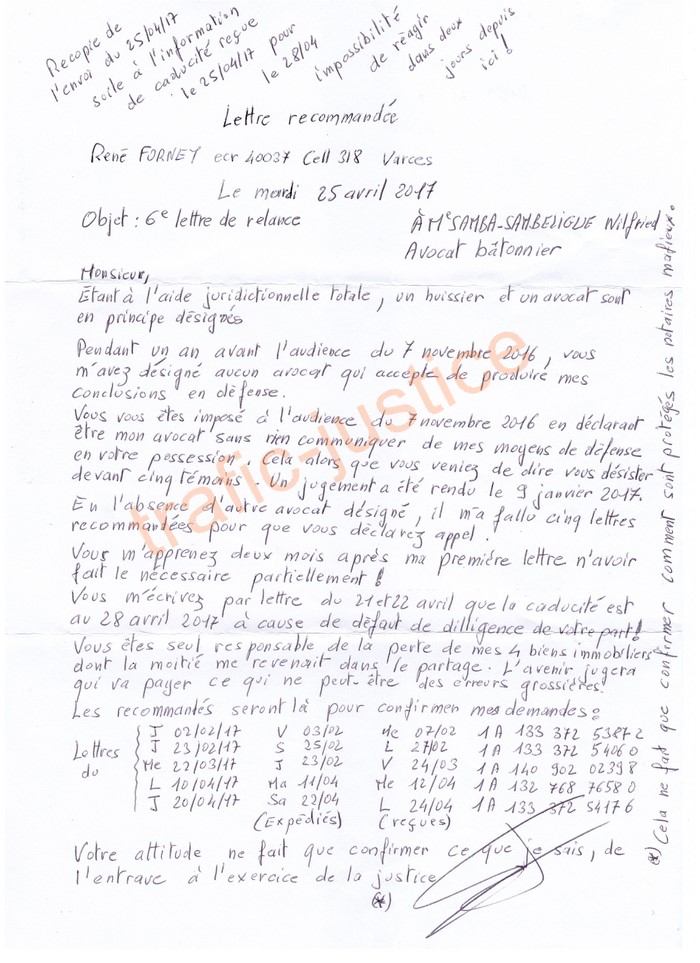 Recopie de
l'envoi du 25/04/17
suite à l'information
de caducité reçue
le 25/04/17 pour
le 28/04
impossibilité
de réagir
dans deux
jours depuis
ici !
Lettre recommandée
René FORNEY ecr 40037 Cell 318 Varces
Le mardi 25 avril 2017
Objet : 6e lettre de relance
À Me SAMBA-SAMBELIGUE Wilfried
Avocat bâtonnier
Monsieur,
Étant à l'aide juridictionnelle totale, un huissier et un avocat sont
en principe désignés
Pendant un an avant l'audience du 7 novembre 2016, vous
m'avez désigné aucun avocat qui accepte de produire mes
conclusions en défense.
Vous vous êtes imposé à l'audience du 7 novembre 2016 en déclarant
être mon avocat sans rien communiquer de mes moyens de défense
en votre possession. Cela alors que vous veniez de dire vous désister
devant cinq témoins. Un jugement a été rendu le 9 janvier 2017.
En l'absence d'autre avocat désigné, il m'a fallu cinq lettres
recommandées pour que vous déclarez appel.
Vous m'apprenez deux mois après ma première lettre n'avoir
fait le nécessaire partiellement !
Vous m'écrivez par lettre du 21 et 22 avril que la caducité est
au 28 avril 2017 à cause de défaut de dilligence de votre part !
Vous êtes seul responsable de la perte de mes 4 biens immobiliers
dont la moitié me revenait dans le partage. L'avenir jugera
qui va payer ce qui ne peut-être des erreurs grossières !
Les recommandés seront là pour confirmer mes demandes :
Lettres du
J 02/02/17 V 03/02 Me 07/02 1A 133 372 5387 2
J 23/02/17 S 25/02 L 27/02 1A 133 372 5406 0
Me 22/03/17 J 23/02 V 24/03 1A 140 902 0239 8
L 10/04/17 Ma 11/04 Me 12/04 1A 132 768 7658 0
J 20/04/17 Sa 22/04 L 24/04 1A 133 372 5417 6
(Expédiés) (reçues)
Votre attitude ne fait que confirmer ce que je sais, de
l'entrave à l'exercice de la justice
(*)
(*) Cela ne fait que confirmer comment sont protégés les notaires mafieux.
trafic-justice